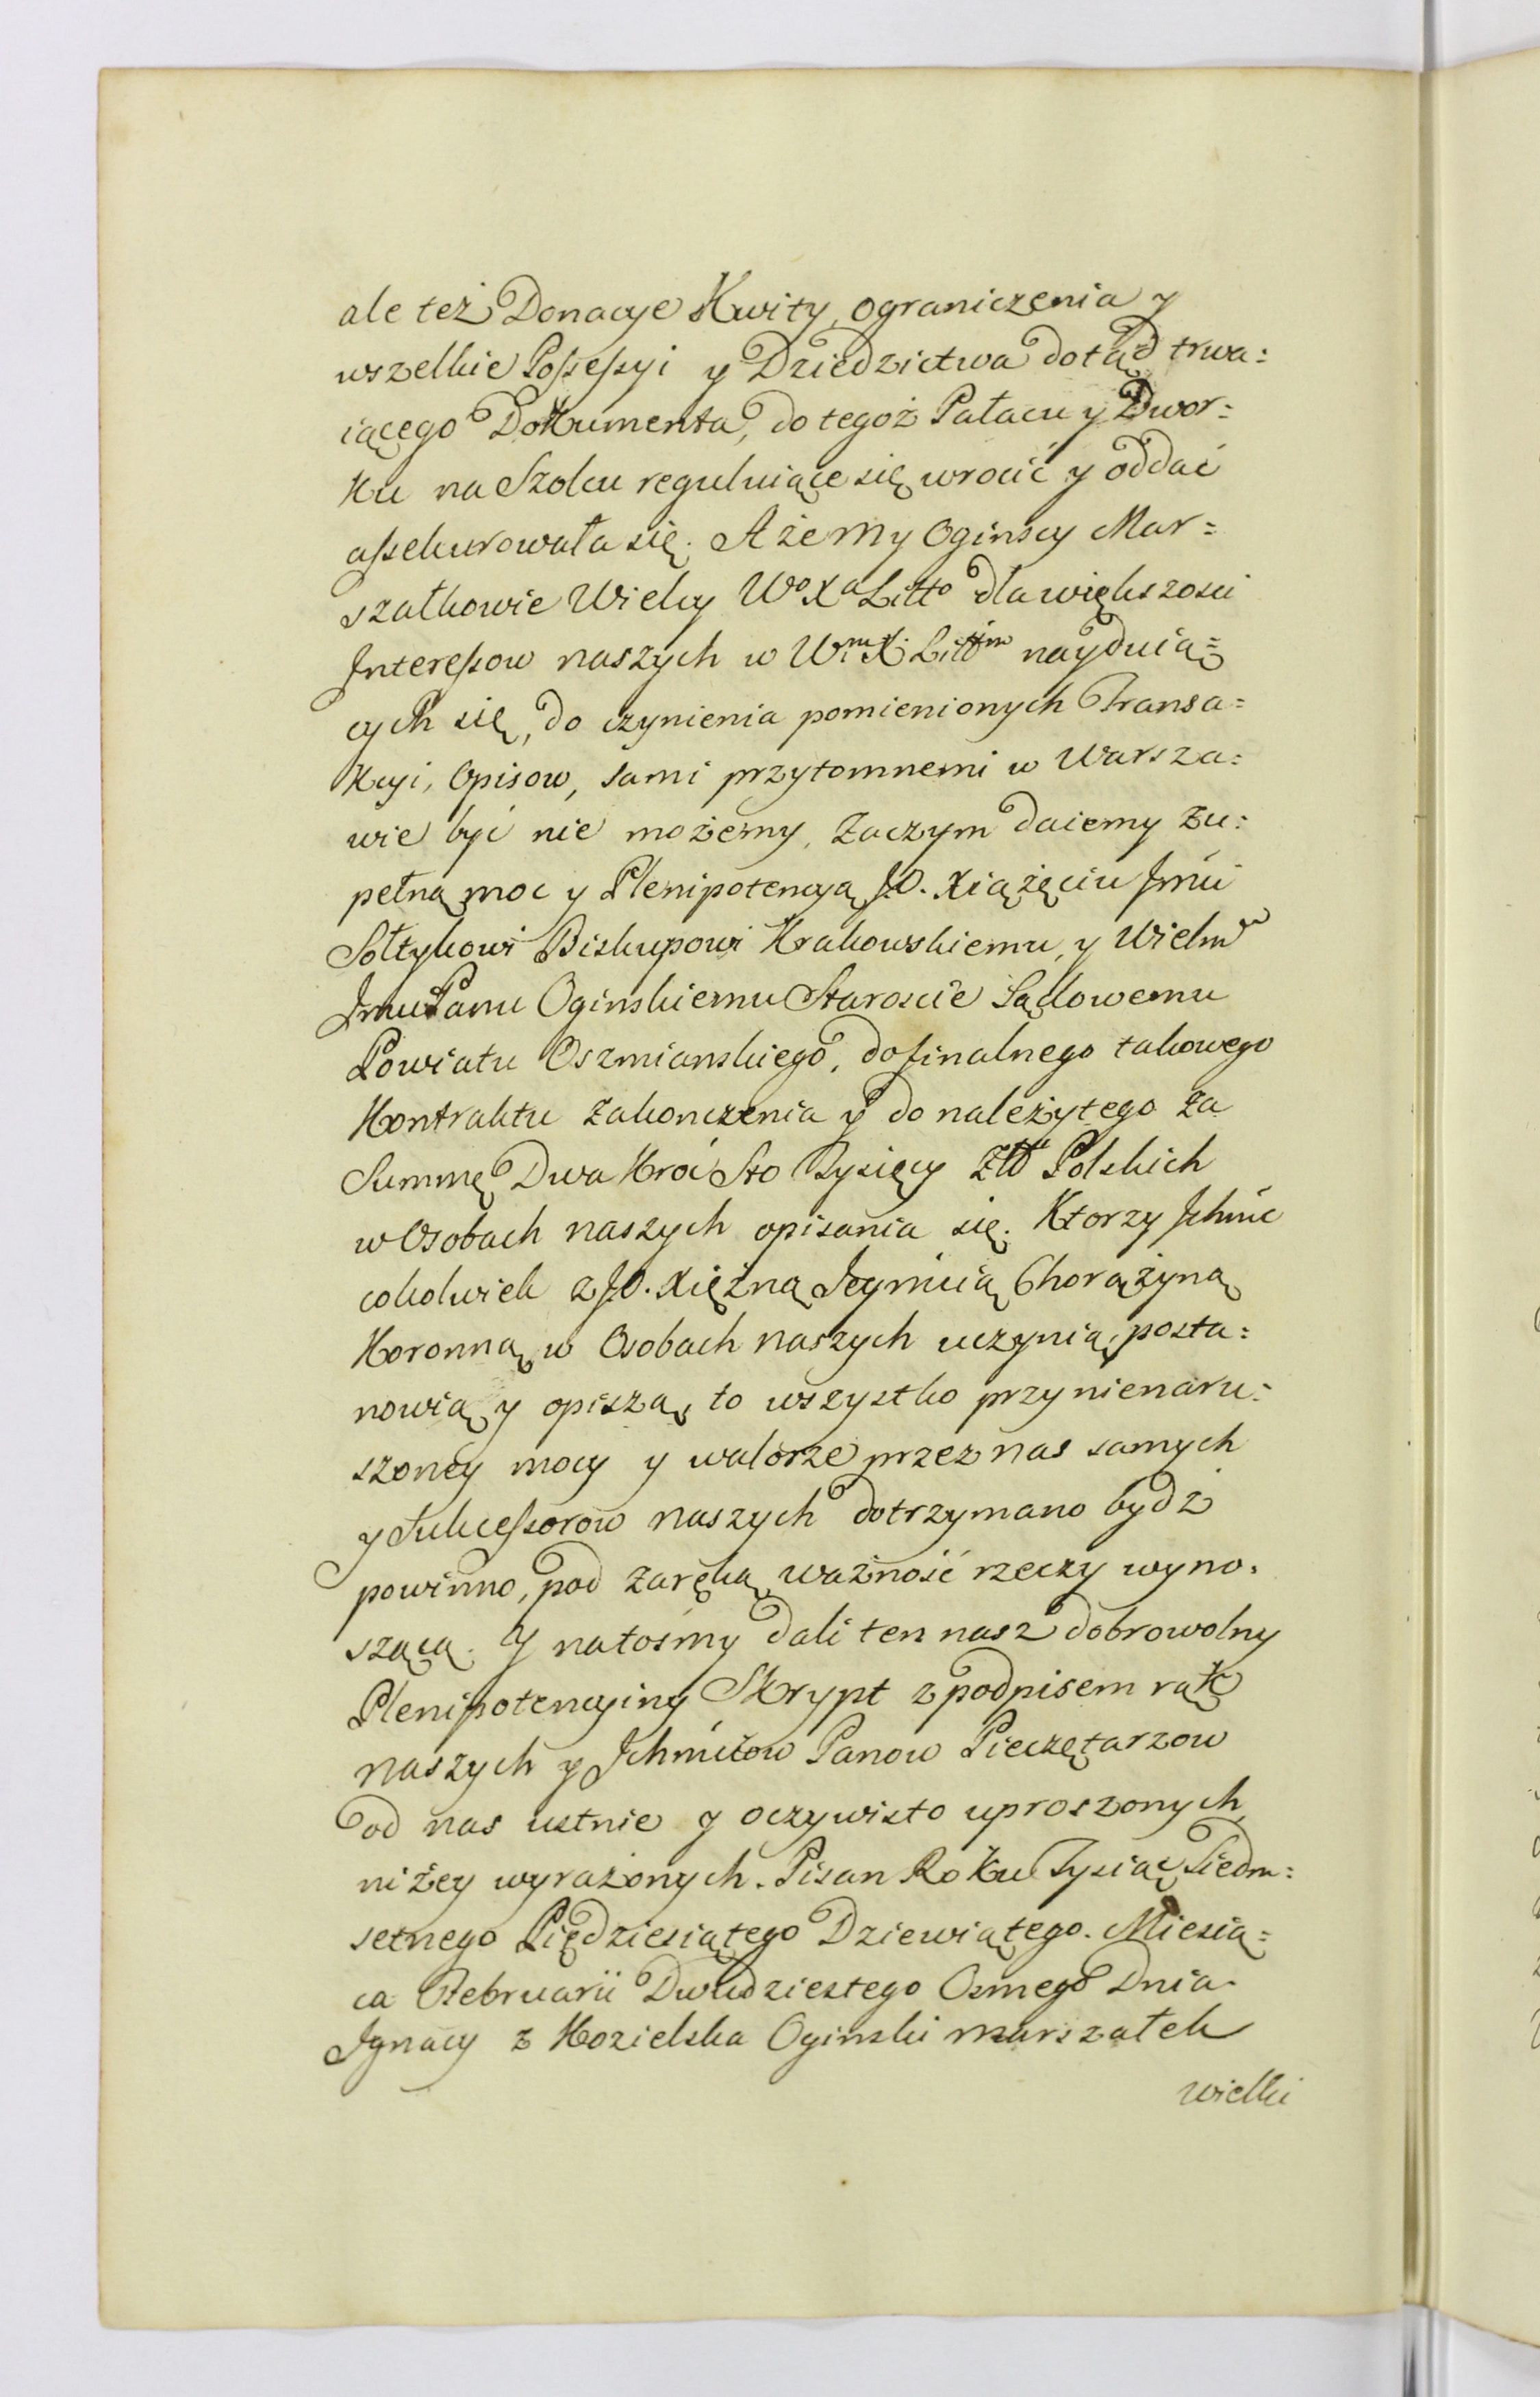 ale też Donacye Kwity, ograniczenia y
wszelkie Possessyi y Dziedzictwa dotąd trwa=
iącego Dokumenta, do tegoż Pałacu y Dwor=
ku na Szolcu reguluiące się wrocić y oddać
assekurowała się. A że My Oginscy Mar=
szałkowie Wielcy Wo Xa Litto dla większosci
Interessow naszych w Wm X: Littm nayduią=
cych się, do czynienia pomienionych Transa=
kcyi, Opisow, sami przytomnemi w Warsza=
wie być nie możemy, Zaczym daiemy zu=
pełną moc y Plenipotencyą J.O. Xiążęciu Jmći
Sołtykowi Biskupowi Krakowskiemu, y Wielmu
Jmu Panu Oginskiemu Staroscie Sądowemu
Powiatu Oszmianskiego, do finalnego takowego
Kontraktu zakonczenia y do należytego za
Summę Dwa Kroć Sto Tysięcy Złł Polskich
w Osobach naszych opisania się. Ktorzy Ichmć
cokolwiek z J.O. Xiężną Jeymcią Chorążyną
Koronną w Osobach naszych uczynią, posta=
nowią y opiszą, to wszystko przy nienaru=
szoney mocy y walorze przez nas samych
y Sukcessorow naszych dotrzymano bydź
powinno, pod zaręką ważność rzeczy wyno=
szącą. Y na tośmy dali ten nasz dobrowolny
Plenipotencyiny Skrypt z podpisem rąk
naszych y Ichmćiow Panow Pieczętarzow
od nas ustnie y oczywisto uproszonych
niżey wyrażonych. Pisan Roku Tysiąc Siedm=
setnego Pięćdziesiątego Dziewiątego. Miesią=
ca Februarii Dwudziestego Osmego Dnia.
Ignacy z Kozielska Oginski Marszałek
wielki